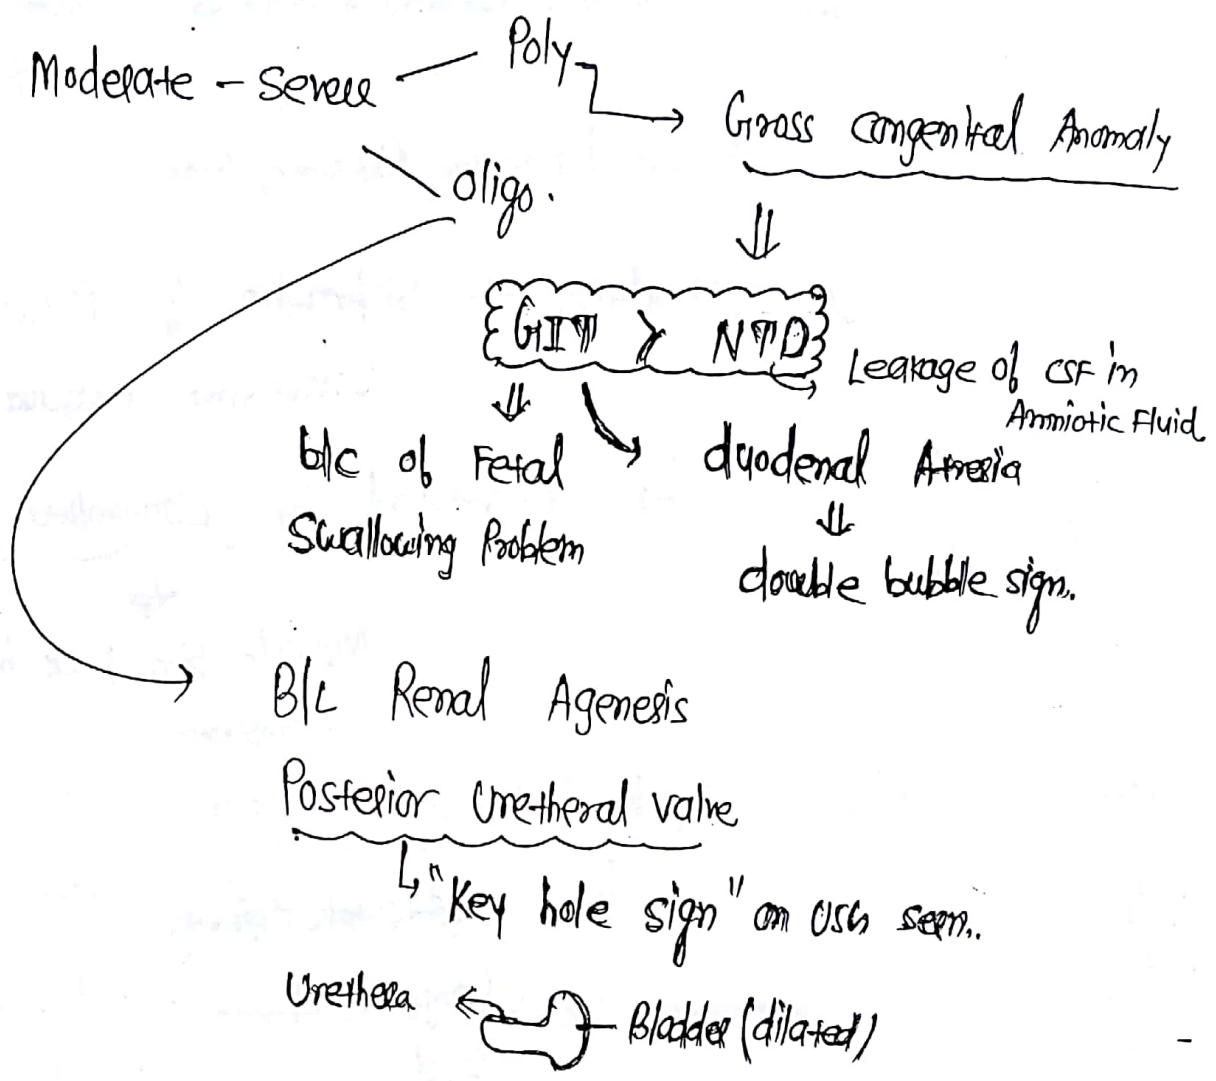 Moderate - Severe
Poly
Gross Congenital Anomaly
Oligo.
GIT > NTD
Leakage of CSF in
Amniotic Fluid
b/c of Fetal
Swallowing Problem
duodenal Atresia
double bubble sign.
B/L Renal Agenesis
Posterior Uretheral valve
"Key hole sign" on USG seen..
Urethera
Bladder (dilated)